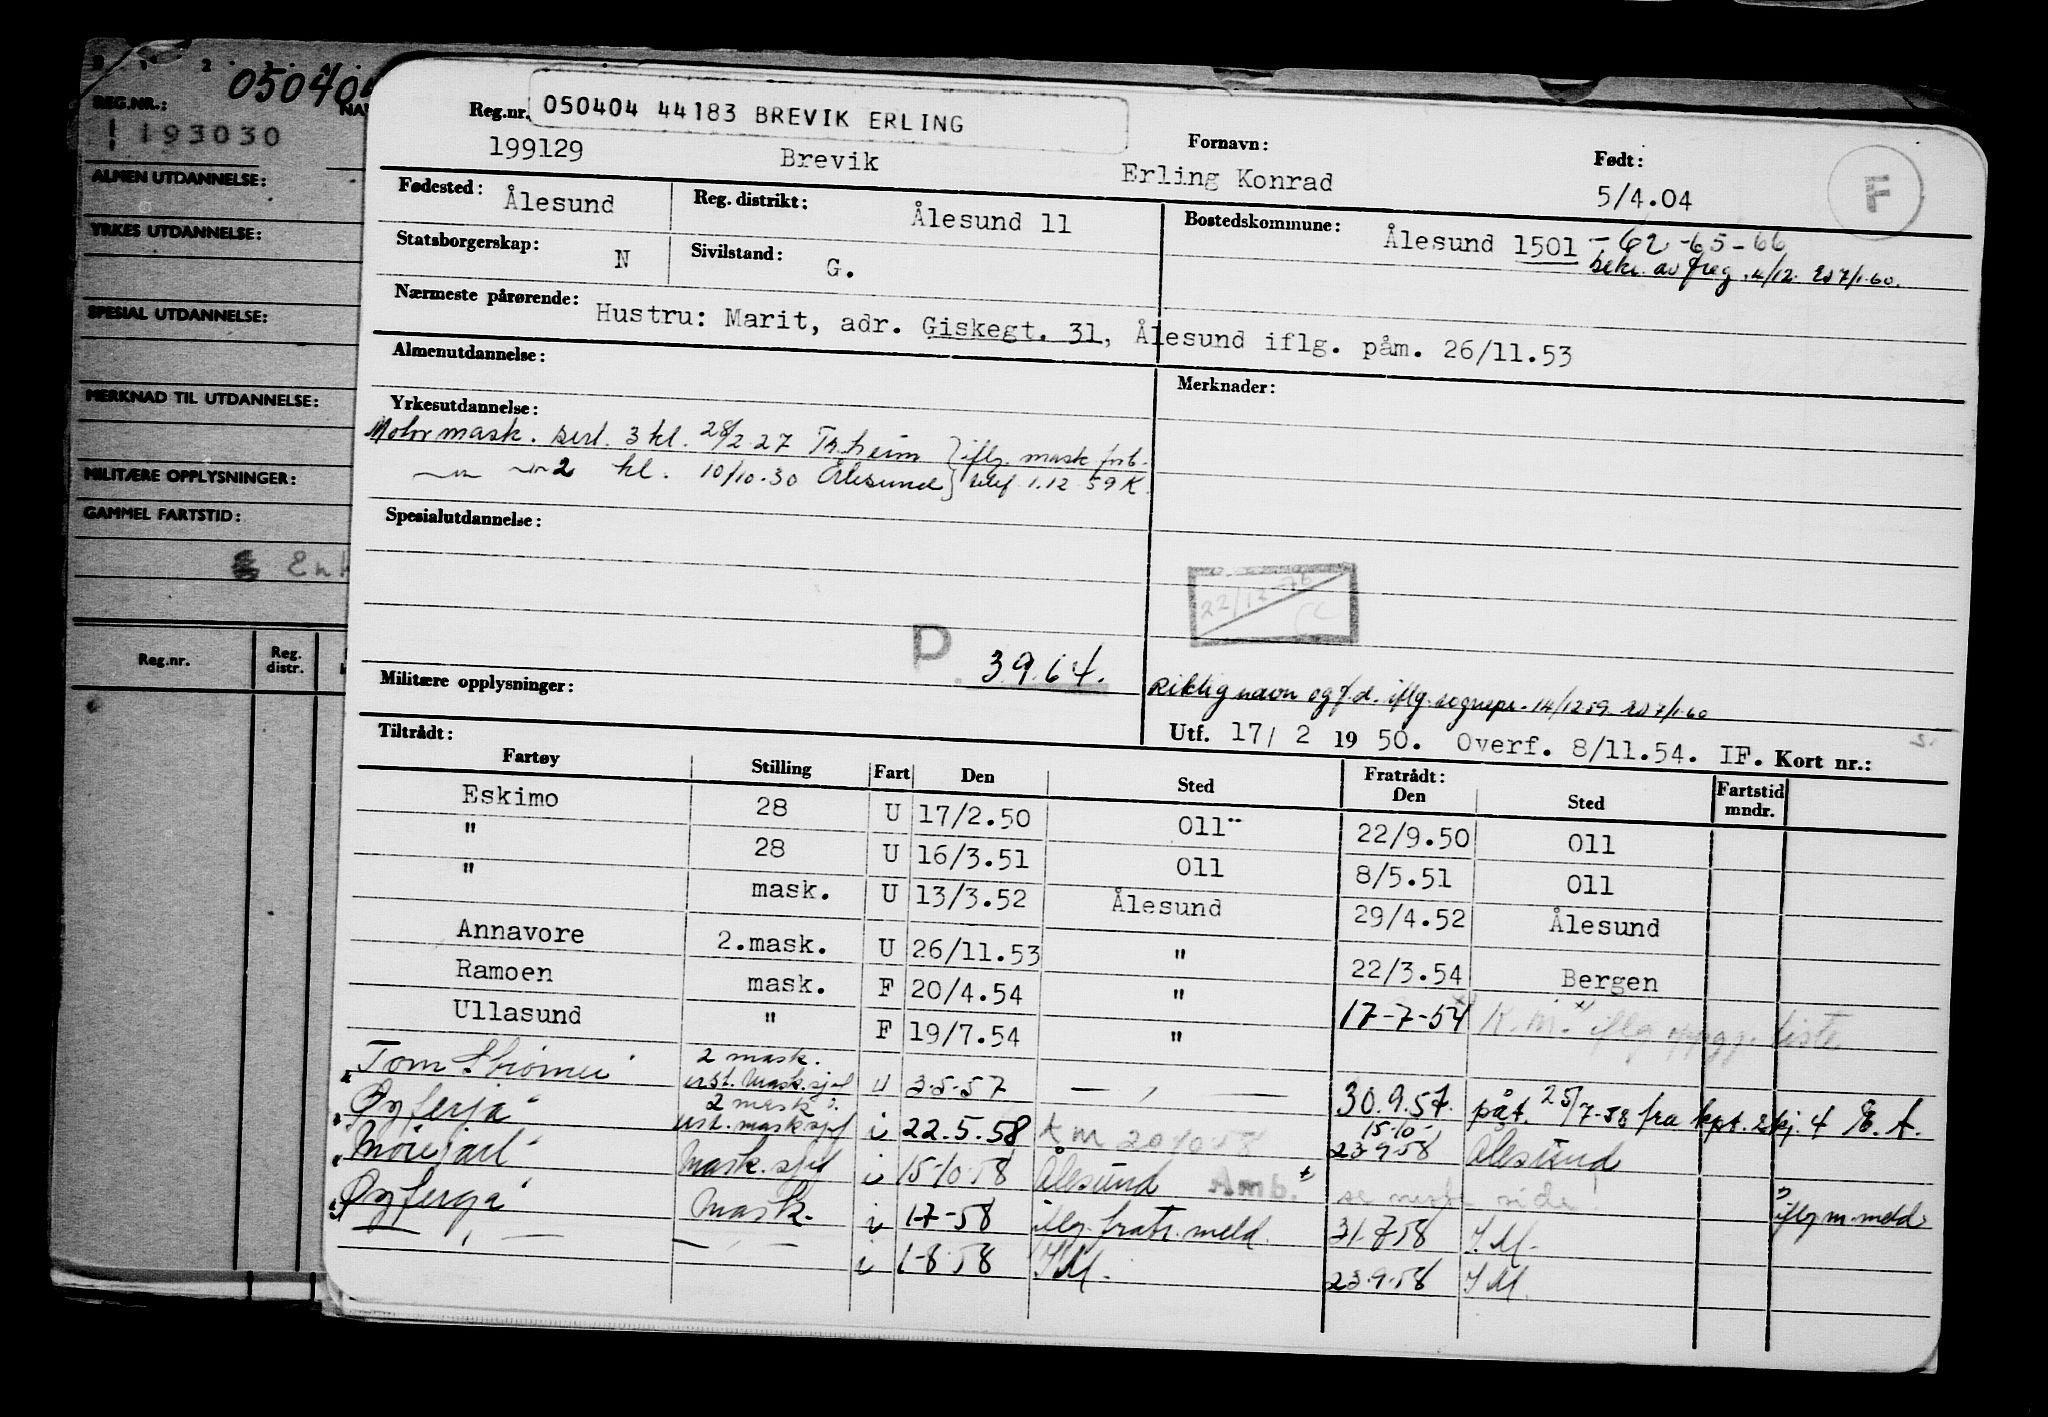 050404
REG.NR.:
193030
ALMEN UTDANNELSE:
YRKES UTDANNELSE:
SPESIAL UTDANNELSE:
MERKNAD TIL UTDANNELSE:
MILITÆRE OPPLYSNINGER:
GAMMEL FARTSTID:
Reg.nr. Reg. distr.
Reg.nr. 050404 44183 BREVIK ERLING Fornavn: Født:
199129 Brevik Erling Konrad 5/4.04 F
Fødested: Ålesund Reg. distrikt: Ålesund 11 Bostedskommune: Ålesund 1501 -62-65-66
bekr. av freg. 4/12. 7/1-60.
Statsborgerskap: N Sivilstand: G.
Nærmeste pårørende: Hustru: Marit, adr. Giskegt. 31, Ålesund iflg. påm. 26/11.53
Almenutdannelse: Merknader:
Yrkesutdannelse:
Motormask. sert. 3 kl. 28/2 27 Tr.heim } iflg. mask forb.
2 kl. 10/10.30 Ålesund } 1.12 59 K.
Spesialutdannelse:
22/12-76
P 3964.
Militære opplysninger: Riktig navn og f.d. iflg. sognepr. 14/12 59. 7/1-60
Utf. 17/ 2 19 50. Overf. 8/11.54. IF. Kort nr.:
Tiltrådt:
Fartøy Stilling Fart Den Sted Fratrådt: Den Sted Fartstid mndr.
Eskimo 28 U 17/2.50 011 22/9.50 011
" 28 U 16/3.51 011 8/5.51 011
" mask. U 13/3.52 Ålesund 29/4.52 Ålesund
Annavore 2.mask. U 26/11.53 " 22/3.54 Bergen
Ramoen mask. F 20/4.54 " 17-7-54 K.M. iflg oppg. liste
Ullasund " F 19/7.54 "
Tom Strømer 2 mask. urst. mask.sjef U 3-5-57 — " — 30.9.57. påt. 25/7-58 fra kpt. 2kj. 4 E. A.
Øyferja 2 mask urst. mask sjef i 22.5.58 KM 20/10 58 15-10- 23-9-58 Ålesund
Mørejarl Mask. sjef i 15-10-58 Ålesund Amb. se neste side!
Øyferja Mask. i 1-7-58 iflg. fratr. meld. 31-7-58 I.M. iflg m. meld
— " — — " — i 1-8-58 I.M. 23-9-58 I.M.